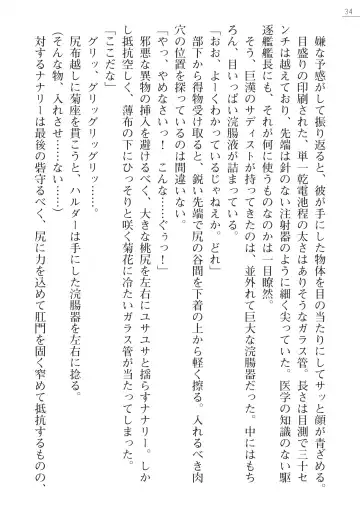 34
嫌な予感がして振り返ると、彼が手にした物体を目の当たりにしてサッと顔が青ざめる。
目盛りの印刷された、単一乾電池程の太さはありそうなガラス管。長さは目測で三十セ
ンチは越えており、先端は針のない注射器のように細く尖っていた。医学の知識のない駆
逐艦艦長にも、それが何に使うものなのかは一目瞭然。
そう、巨漢のサディストが持ってきたのは、並外れて巨大な浣腸器だった。中にはもち
ろん、目いっぱい浣腸液が詰まっている。
「おお、よくわかっているじゃねえか。どれ」
部下から得物受け取ると、鋭い先端で尻の谷間を下着の上から軽く擦る。入れるべき肉
穴の位置を探っているのは間違いない。
「やっ、やめなさいっ！　こんな……ぐぅっ！」
邪悪な異物の挿入を避けるべく、大きな桃尻を左右にユサユサと揺らすナナリー。しか
し抵抗空しく、薄布の下にひっそりと咲く菊花に冷たいガラス管が当たってしまった。
「ここだな」
グリッ、グリッグリッグリッ……。
尻布越しに菊座を貫こうと、ハルダーは手にした浣腸器を左右に捻る。
（そんな物、入れさせ……ないっ）
対するナナリーは最後の砦守るべく、尻に力を込めて肛門を固く窄めて抵抗するものの、